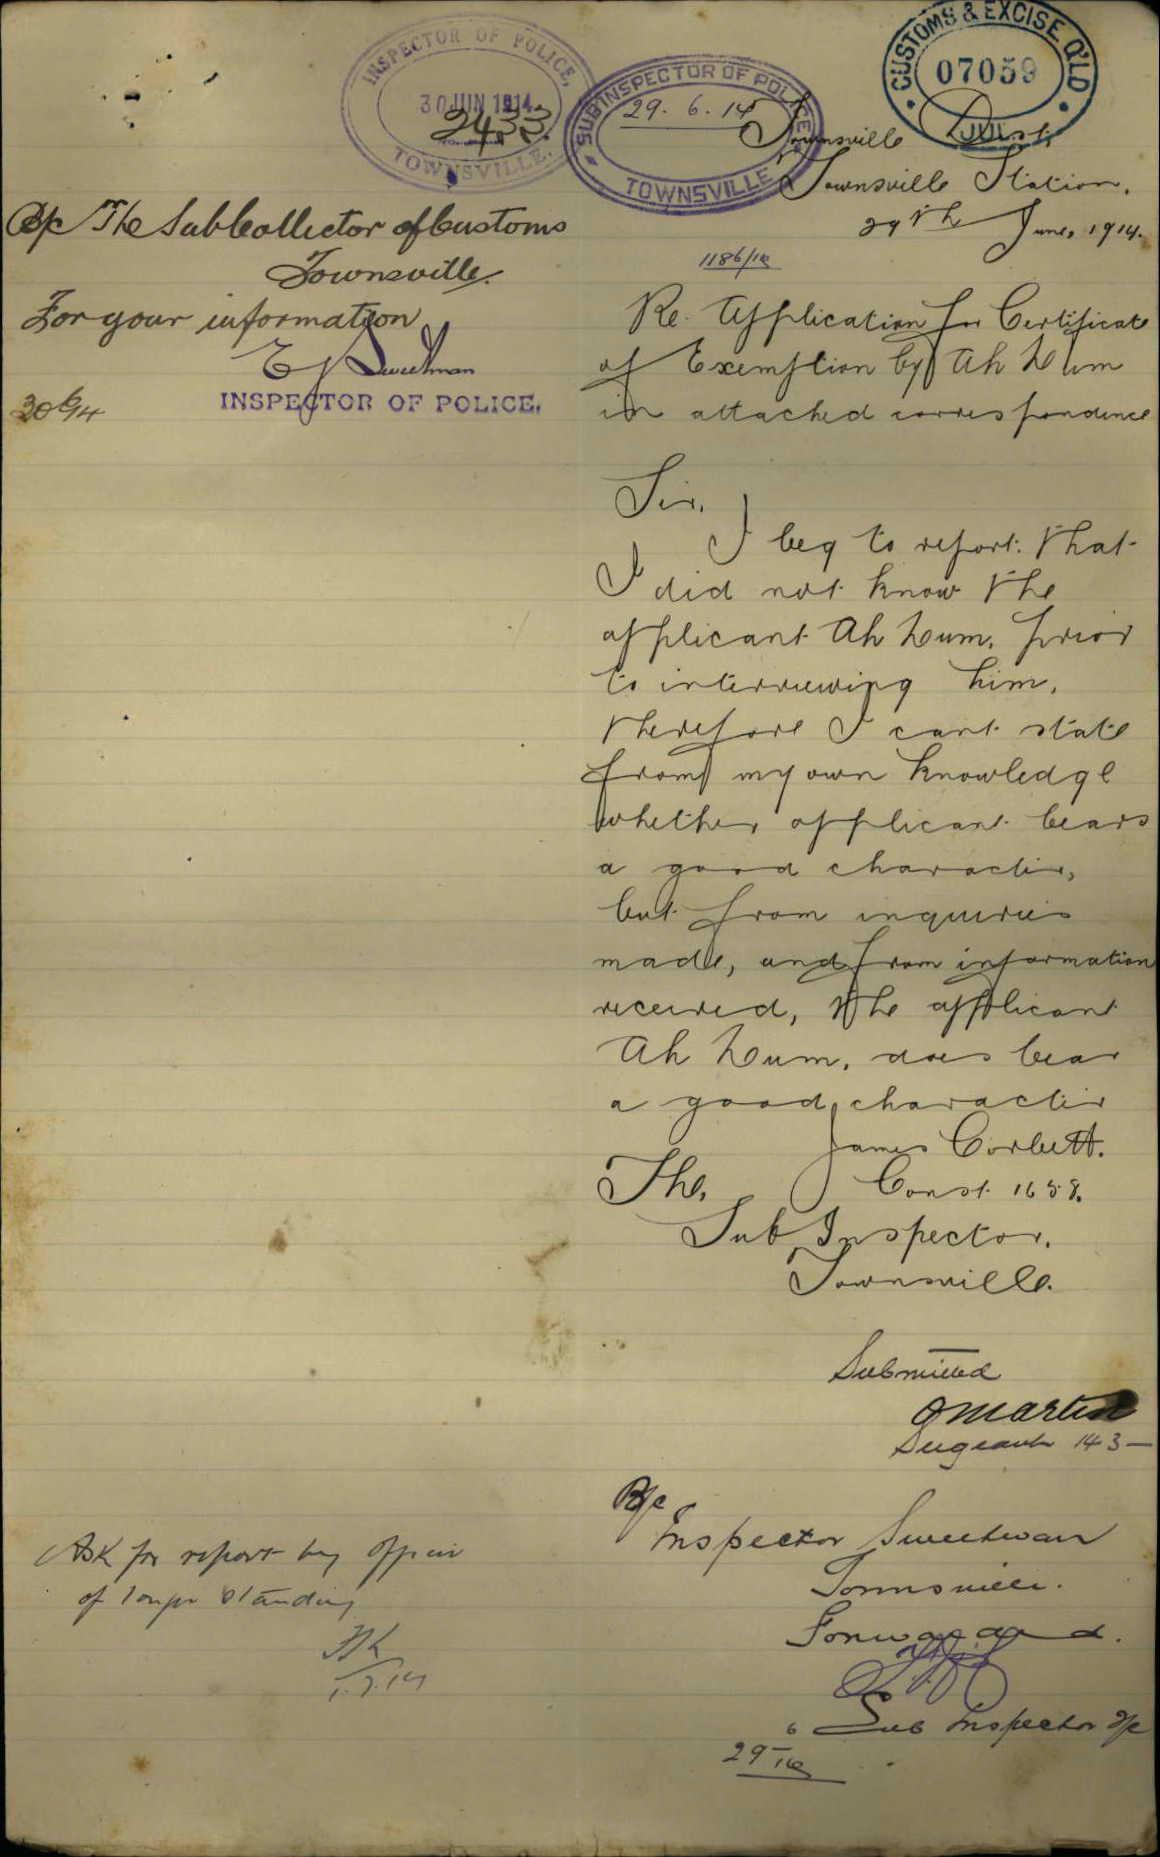 INSPECTOR OF POLICE,
30 JUN 1914
2433
TOWNSVILLE.
SUB INSPECTOR OF POLICE
29. 6. 14
TOWNSVILLE
CUSTOMS & EXCISE Q'LD
07059
JUL
Townsville Dist.
Townsville Station.
29th June, 1914.
1186/14
B/c The Sub Collector of Customs
Townsville.
For your information
E J Sweetman
INSPECTOR OF POLICE.
30/6/14
Re. Application for Certificate
of Exemption by Ah Lum
in attached correspondence
Sir,
I beg to report. that
I did not know the
applicant Ah Lum, prior
to interviewing him,
therefore I cant state
from my own knowledge
whether applicant bears
a good character,
but from inquiries
made, and from information
received, the applicant
Ah Lum, does bear
a good character
James Corbett.
Const. 1658.
The,
Sub Inspector.
Townsville.
Submitted
Martin
Sergeant 143
B/c
Inspector Sweetman
Townsville.
Forwarded.
Sub Inspector
29 6/14
Ask for report by officer
of longer standing
1.7.14